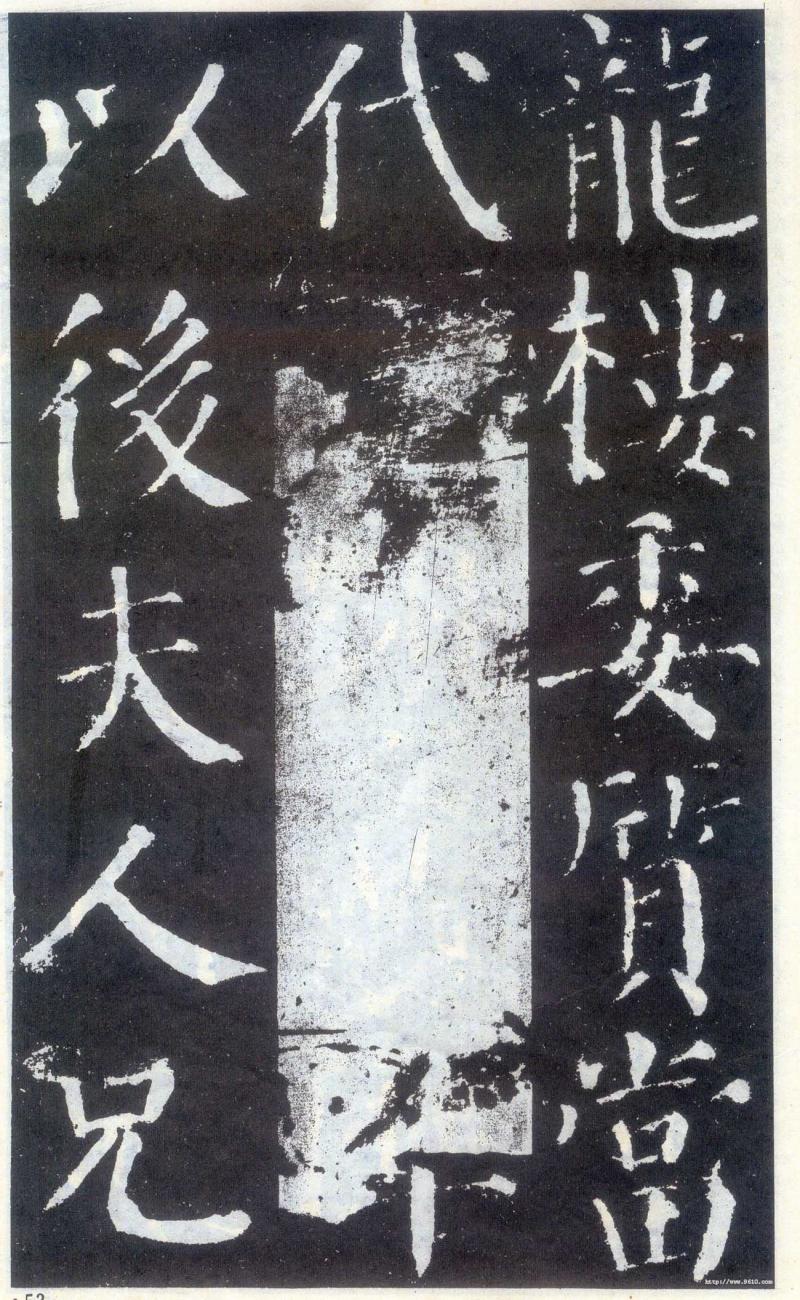 龍樓委質當
代
以後夫人兄
http://www.9610.com
53